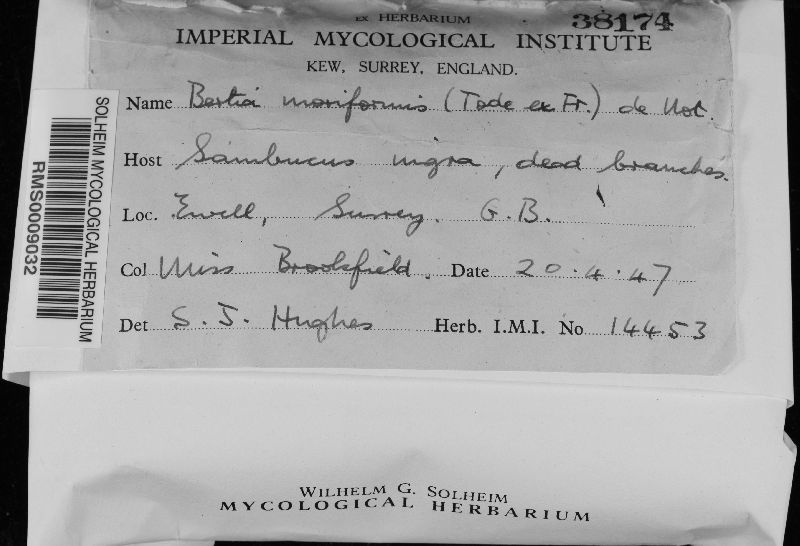 ex HERBARIUM 38174
IMPERIAL MYCOLOGICAL INSTITUTE
KEW, SURREY, ENGLAND.
Name Bertia moriformis (Tode ex Fr.) de Not.
Host Sambucus nigra, dead branches.
Loc. Ewell, Surrey. G.B.
Col Miss Brookfield. Date 20.4.47
Det S. J. Hughes Herb. I.M.I. No 14453
SOLHEIM MYCOLOGICAL HERBARIUM
RMS0009032
WILHELM G. SOLHEIM
MYCOLOGICAL HERBARIUM